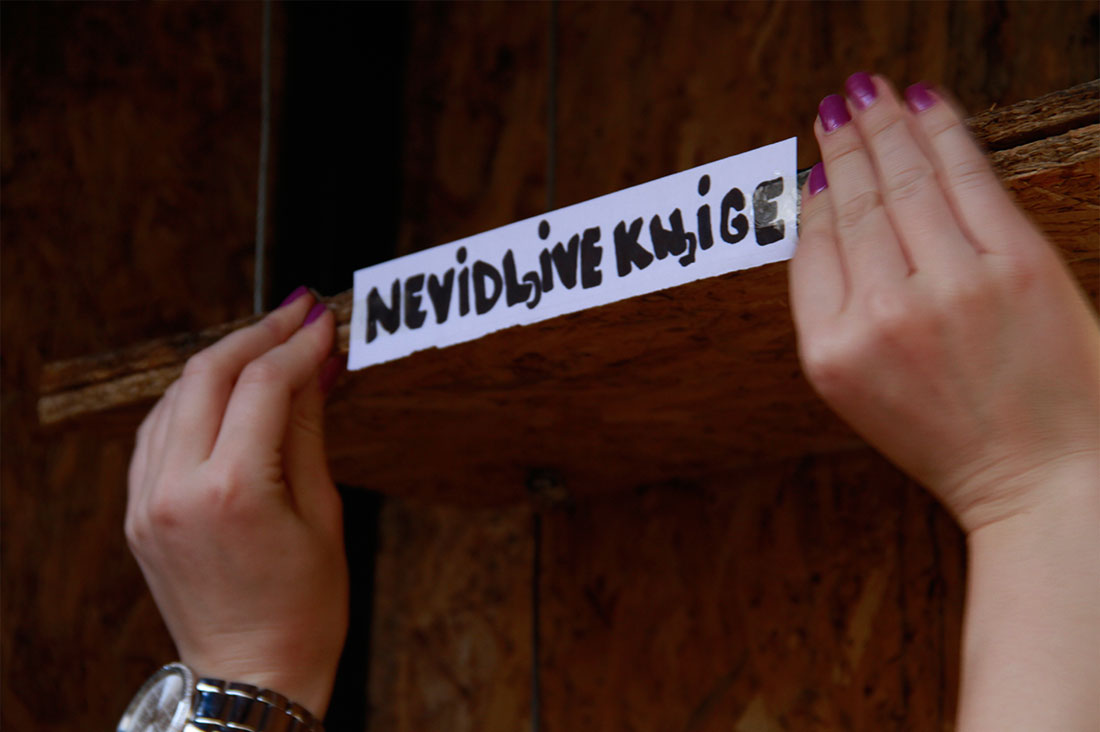 NEVIDLJIVE KNJIGE